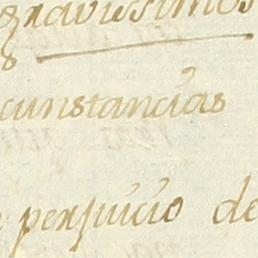 gravissimos
s
cunstancias
perjuicio de